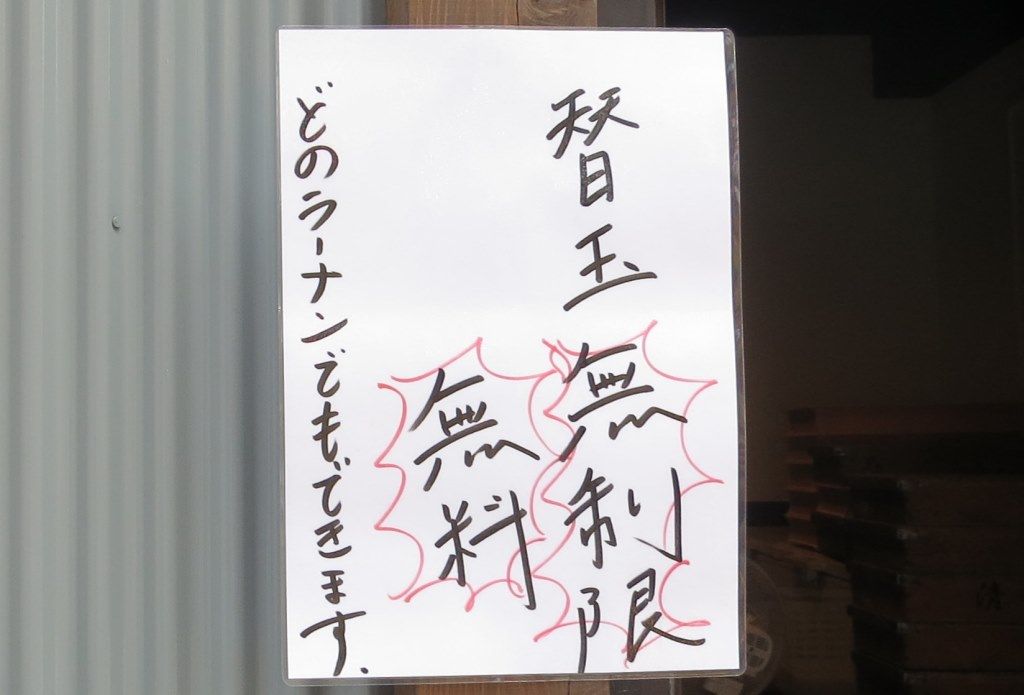 替玉無制限
無料
どのラーメンでもできます.